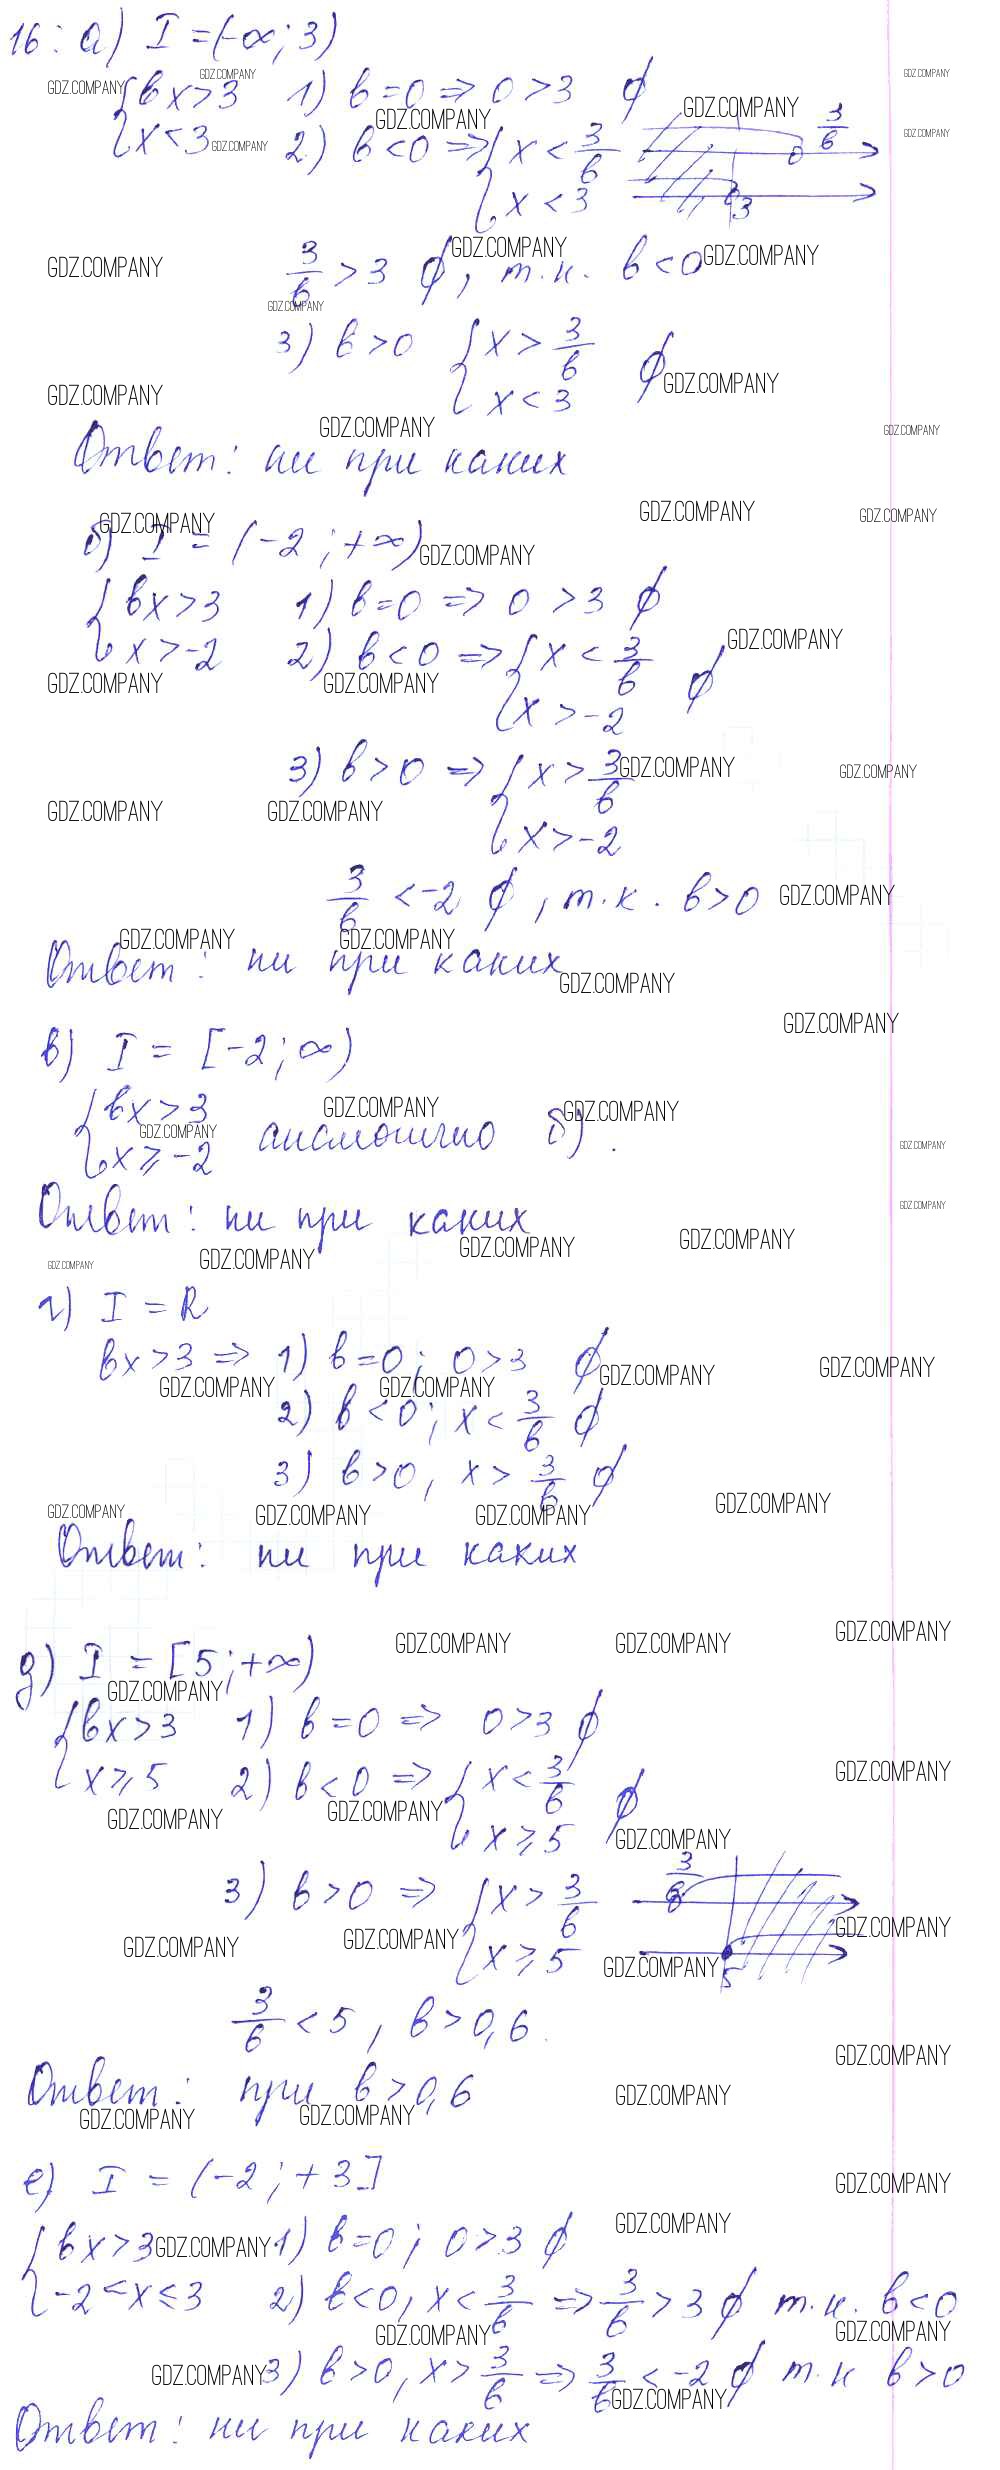 16: а) I = (-∞; 3)
{bx > 3 1) b = 0 ⇒ 0 > 3 ∅
{x < 3 2) b < 0 ⇒ {x < 3/b 3/b
{x < 3 3
3/b > 3 ∅, т.к. b < 0
3) b > 0 {x > 3/b ∅
{x < 3
Ответ: ни при каких
б) I = (-2; +∞)
{bx > 3 1) b = 0 ⇒ 0 > 3 ∅
{x > -2 2) b < 0 ⇒ {x < 3/b ∅
{x > -2
3) b > 0 ⇒ {x > 3/b
{x > -2
3/b < -2 ∅, т.к. b > 0
Ответ: ни при каких
в) I = [-2; ∞)
{bx > 3
{x ⩾ -2 аналогично б).
Ответ: ни при каких
г) I = R
bx > 3 ⇒ 1) b = 0; 0 > 3 ∅
2) b < 0; x < 3/b ∅
3) b > 0, x > 3/b ∅
Ответ: ни при каких
д) I = [5; +∞)
{bx > 3 1) b = 0 ⇒ 0 > 3 ∅
{x ⩾ 5 2) b < 0 ⇒ {x < 3/b ∅
{x ⩾ 5
3) b > 0 ⇒ {x > 3/b 3/b
{x ⩾ 5 5
3/b < 5, b > 0,6
Ответ: при b > 0,6
е) I = (-2; +3]
{bx > 3 1) b = 0; 0 > 3 ∅
{-2 < x ⩽ 3 2) b < 0, x < 3/b ⇒ 3/b > 3 ∅ т.к. b < 0
3) b > 0, x > 3/b ⇒ 3/b < -2 ∅ т.к b > 0
Ответ: ни при каких
GDZ.COMPANY